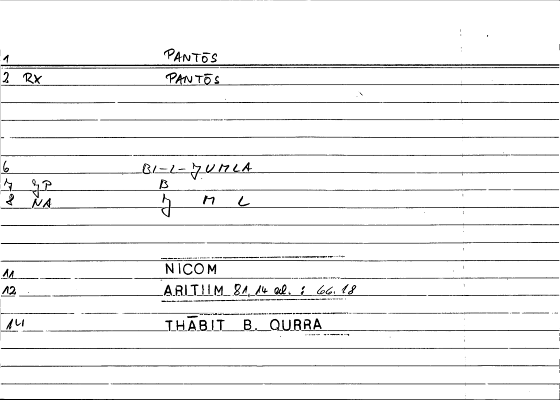 1 PANTŌS
2 RX PANTŌS
6 BI-L-JUMLA
7 JP B
8 NA J M L
11 NICOM
12 ARITIIM 81,14 ad. : 66.18
14 THĀBIT B. QURRA